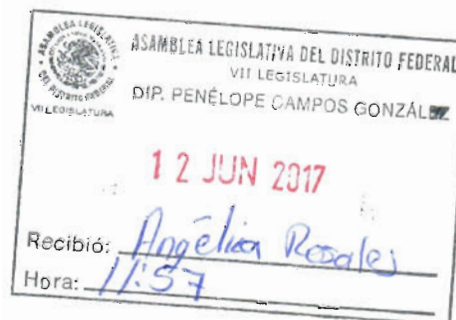 ASAMBLEA LEGISLATIVA
DEL DISTRITO FEDERAL
VII LEGISLATURA
ASAMBLEA LEGISLATIVA DEL DISTRITO FEDERAL
VII LEGISLATURA
DIP. PENÉLOPE CAMPOS GONZÁLEZ
12 JUN 2017
Recibió: Angélica Rosales
Hora: 11:57